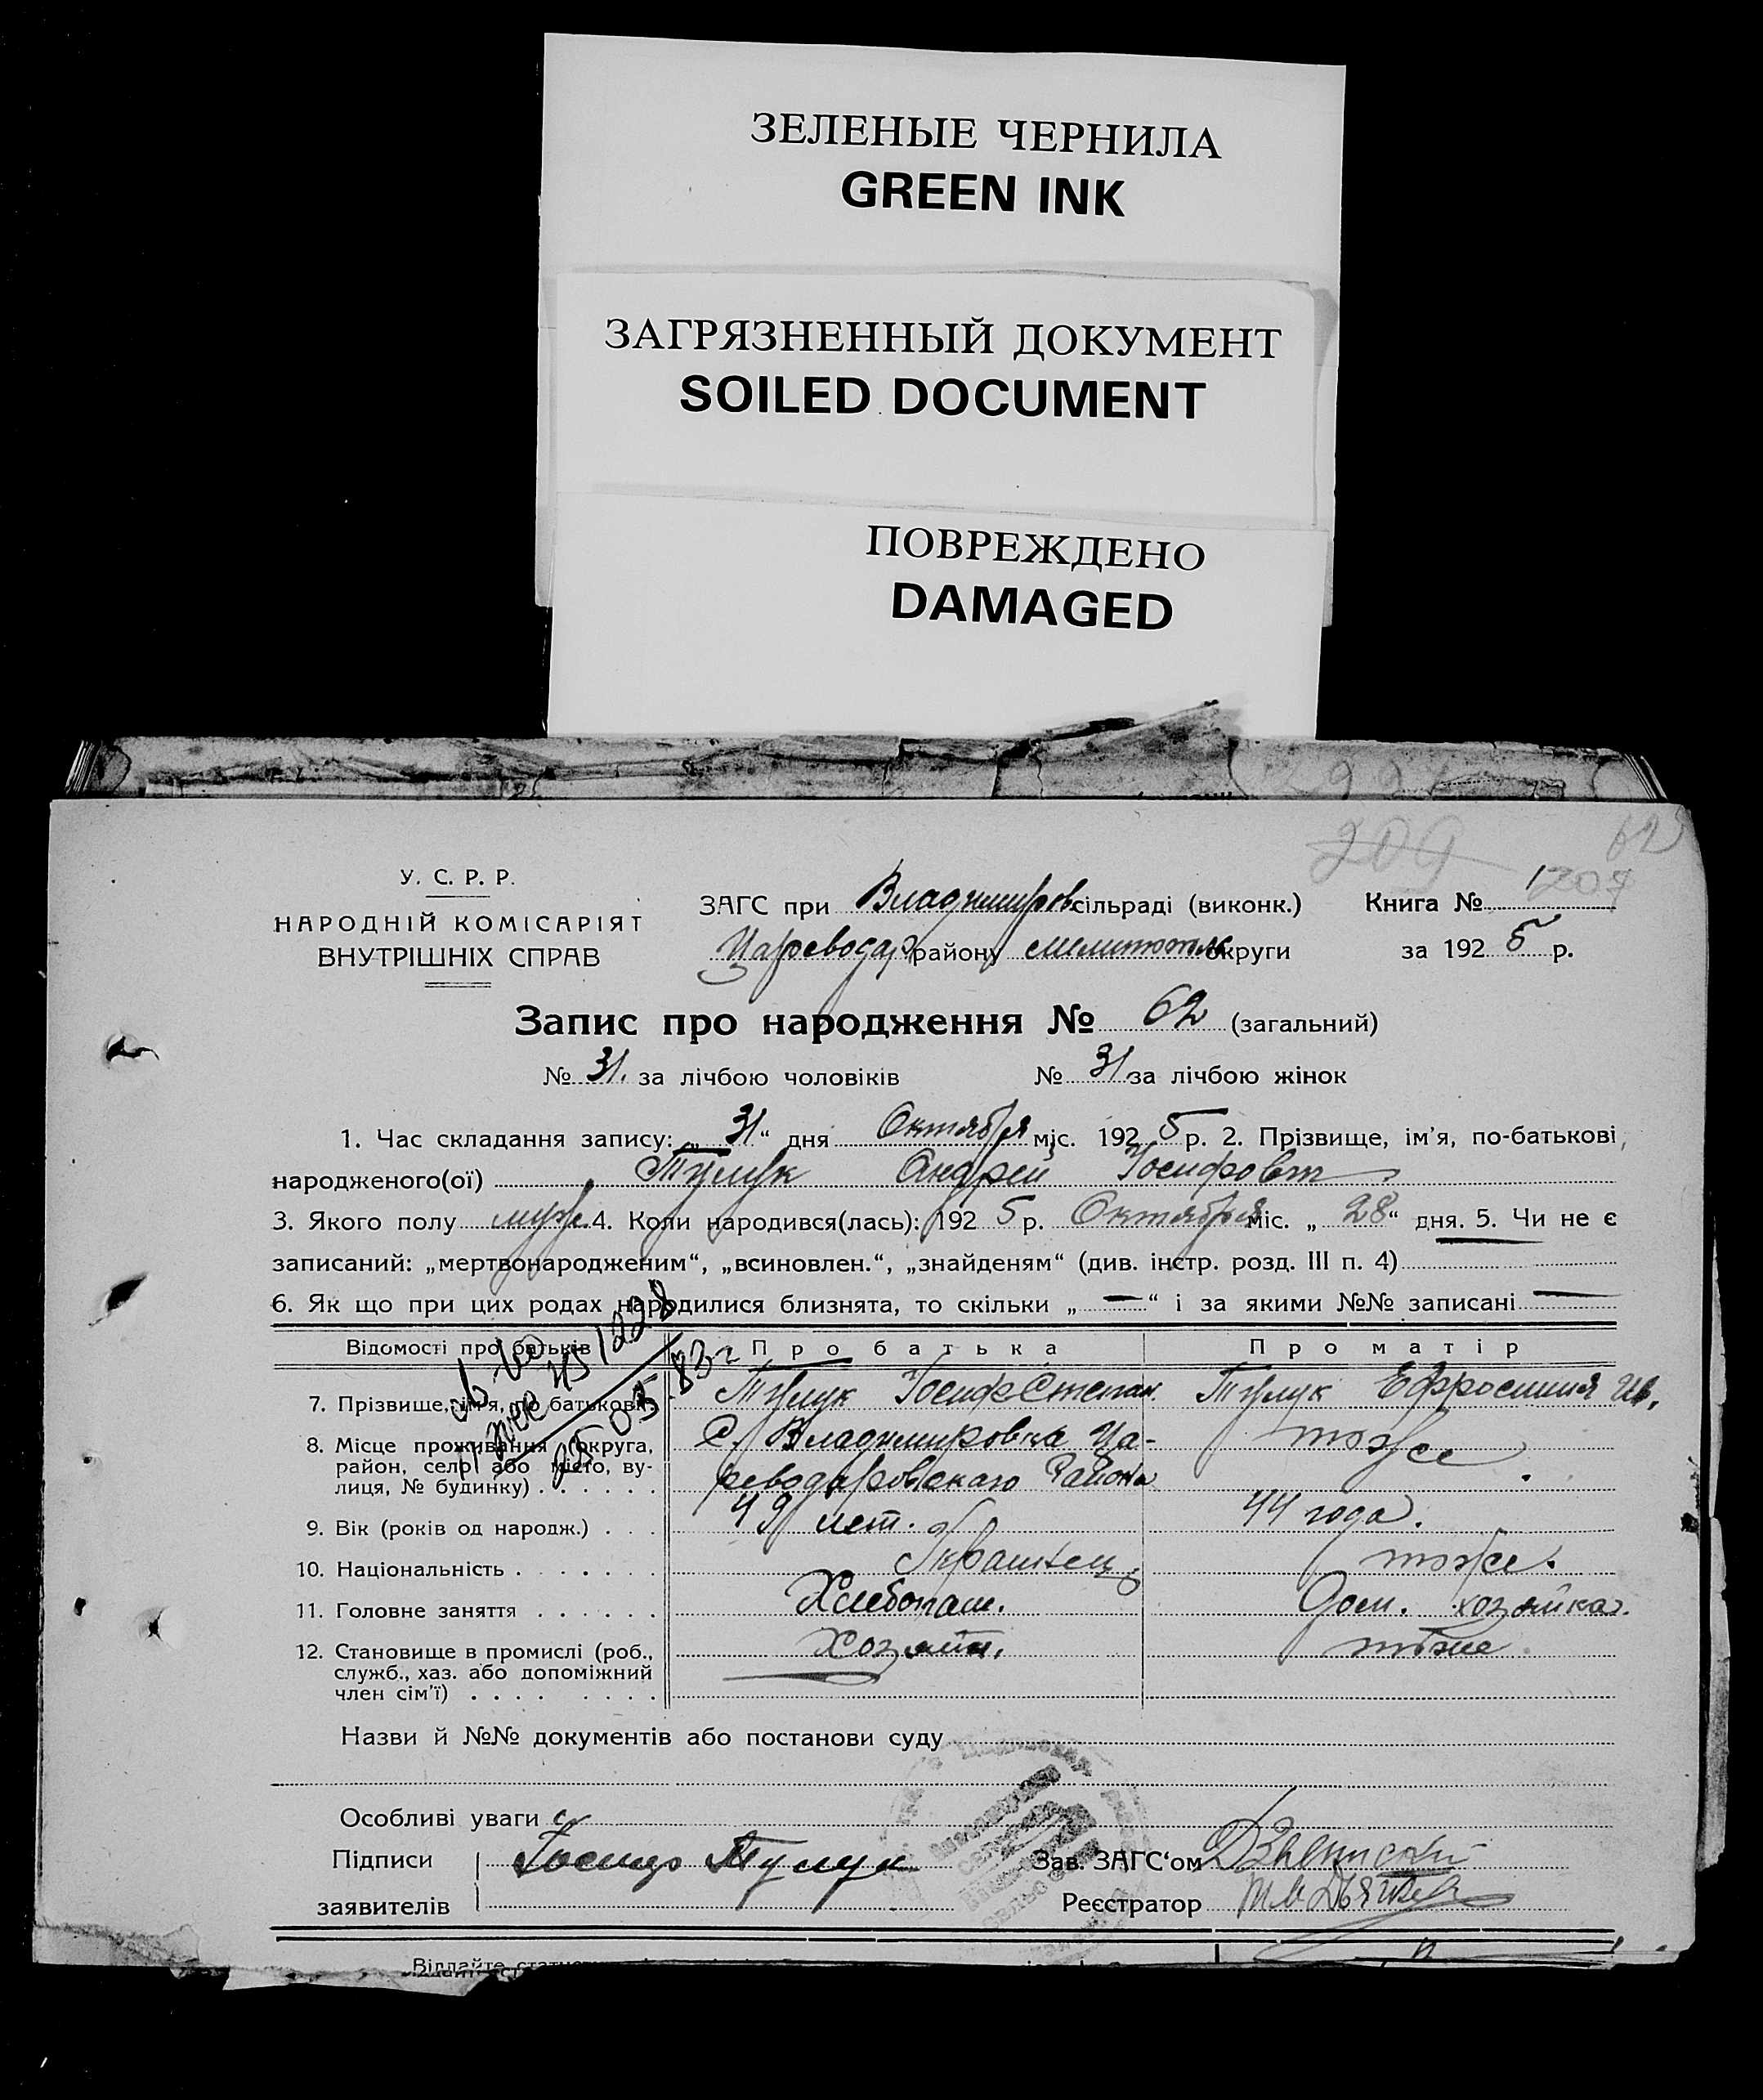 ЗЕЛЕНЫЕ ЧЕРНИЛА
GREEN INK
ЗАГРЯЗНЕННЫЙ ДОКУМЕНТ
SOILED DOCUMENT
ПОВРЕЖДЕНО
DAMAGED
209 62
У. С. Р. Р.
НАРОДНІЙ КОМІСАРІЯТ
ВНУТРІШНІХ СПРАВ
ЗАГС при Владимиров. сільраді (виконк.) Книга № 1
Цареводар району мелитопол. округи за 192 5 р.
Запис про народження № 62 (загальний)
№ 31. за лічбою чоловіків № 31 за лічбою жінок
1. Час складання запису: „ 31 “ дня Октября міс. 192 5 р. 2. Прізвище, ім’я, по-батькові
народженого(ої) Тулук Андрей Иосифович
3. Якого полу муж. 4. Коли народився(лась): 192 5 р. Октября міс. „ 28 “ дня. 5. Чи не є
записаний: „мертвонародженим“, „всиновлен.“, „знайденям“ (див. інстр. розд. III п. 4)
6. Як що при цих родах народилися близнята, то скільки „ — “ і за якими №№ записані —
Відомості про батьків Про батька Про матір
7. Прізвище, ім’я, по батькові. Тулук Иосиф Степан. Тулук Ефросиния Ив.
8. Місце проживання (округа, район, село або місто, вулиця, № будинку) С. Владимировка Ца- тоже
реводаровскаго Района
9. Вік (років од народж.) 49 лет. 44 года.
10. Національність Украинец тоже.
11. Головне заняття Хлебопаш. Дом. хозяйка.
12. Становище в промислі (роб., служб., хаз. або допоміжний член сім’ї) Хозяин. тоже
25 05 83 г
Назви й №№ документів або постанови суду
Особливі уваги
Підписи Иосиф Тулук Зав. ЗАГС‘ом
заявителів Реєстратор